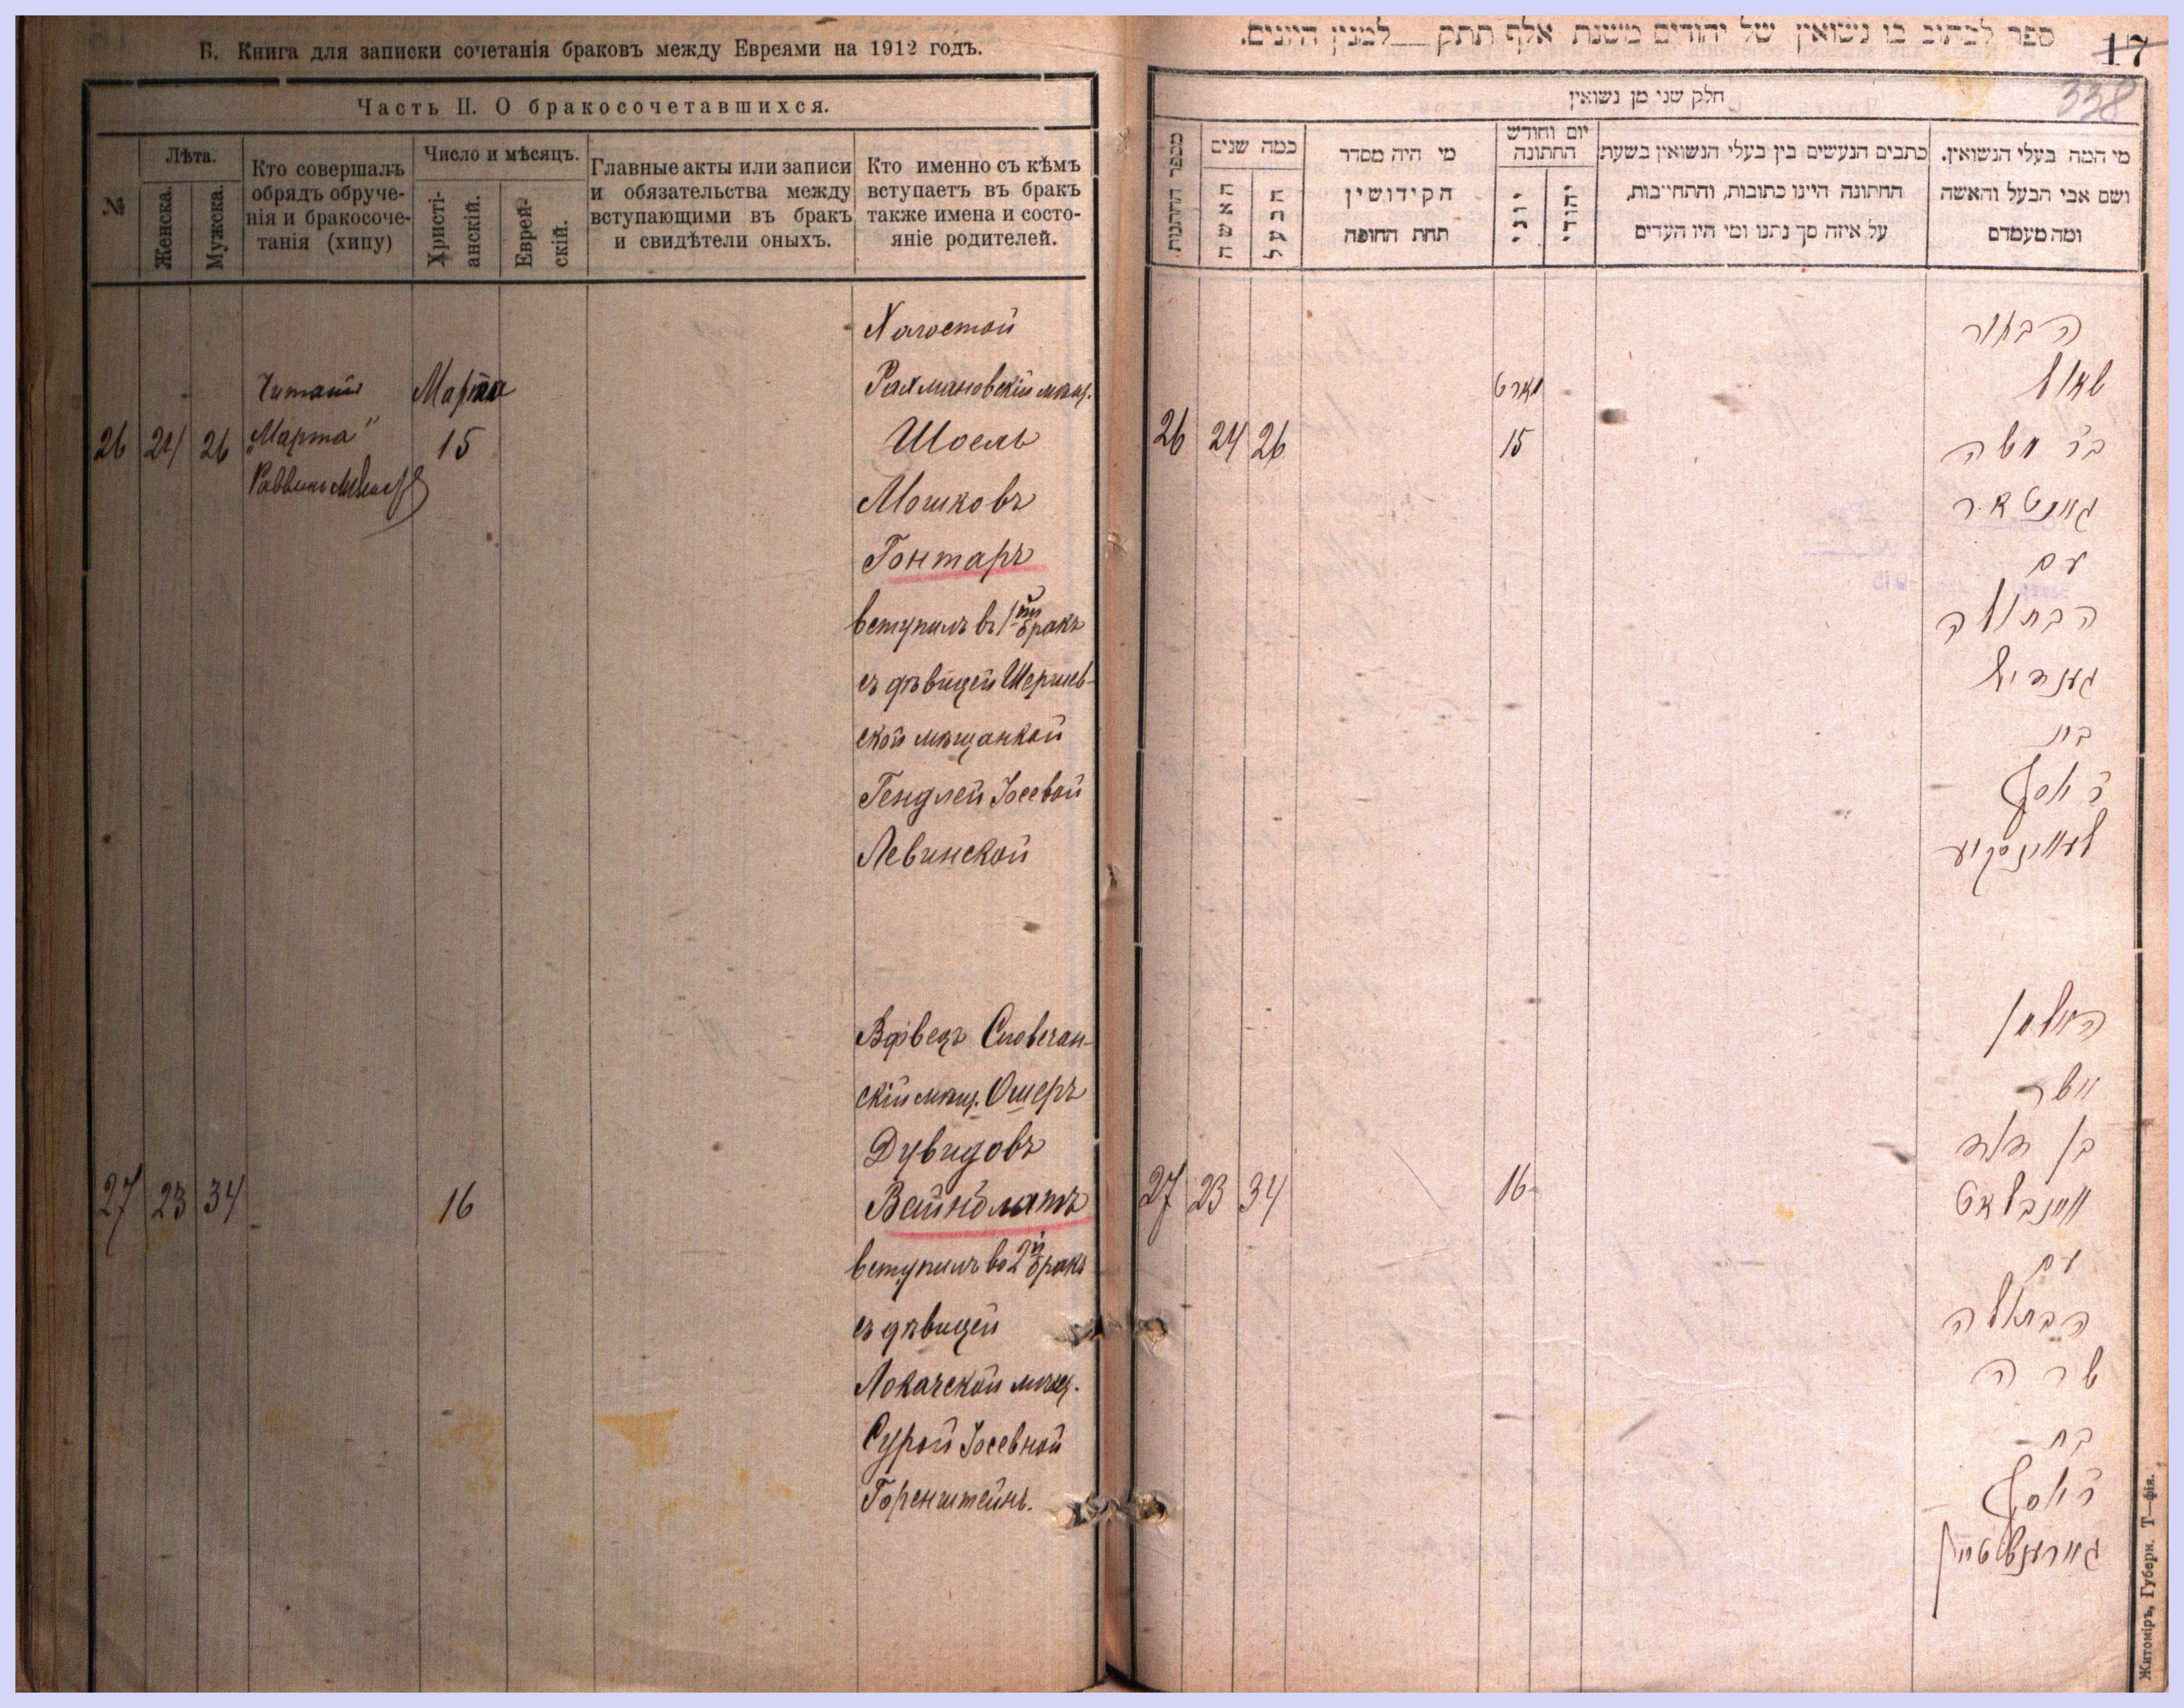 Б. Книга для записки сочетанія браковъ между Евреями на 1912 годъ.
Часть II. О бракосочетавшихся.
№
Лѣта.
Женска.
Мужска.
Кто совершалъ
обрядъ обруче-
нія и бракосоче-
танія (хипу)
Число и мѣсяцъ.
Христі-
анскій.
Еврей-
скій.
Главные акты или записи
и обязательства между
вступающими въ бракъ
и свидѣтели оныхъ.
Кто именно съ кѣмъ
вступаетъ въ бракъ
также имена и состо-
яніе родителей.
Холостой
Читать Марта Рахмановскій мѣщ.
26 24 26 „Марта" 15 Шоель
Раввинъ
Мошковъ
Гонтаръ
вступилъ въ 1ый бракъ
съ дѣвицей
ской мѣщанкой
Гендлей Іосевой
Левинской
Вдовецъ Словечан-
скій мѣщ. Ошеръ
Дувидовъ
27 23 34 16 Вайнблатъ
вступилъ во 2й бракъ
съ дѣвицей
Локачской мѣщ.
Сурой Іосевной
Горенштейнъ.
ספר לכתוב בו נשואין של יהודים משנת אלף תתק __ למנין היונים.
17
338
חלק שני מן נשואין
מספר החתנות
כמה שנים
האשה
הבעל
מי היה מסדר
הקידושין
תחת החופה
יום וחודש
החתונה
יוני
יהודי
כתבים הנעשים בין בעלי הנשואין בשעת
החתונה היינו כתובות, והתחייבות,
על איזה סך נתנו ומי היו העדים
מי המה בעלי הנשואין.
ושם אבי הבעל והאשה
ומה מעמדם
הבחור
מארט שאול
26 24 26 15 בר משה
גאנטאר
עם
הבתולה
הענדיל
בת
ר יוסף
לעווינסקיע
האלמן
אשר
בן דוד
27 23 34 16 וויינבלאט
עם
הבתולה
שרה
בת
ר יוסף
גארענשטיין
Житоміръ, Губерн. Т—фія.